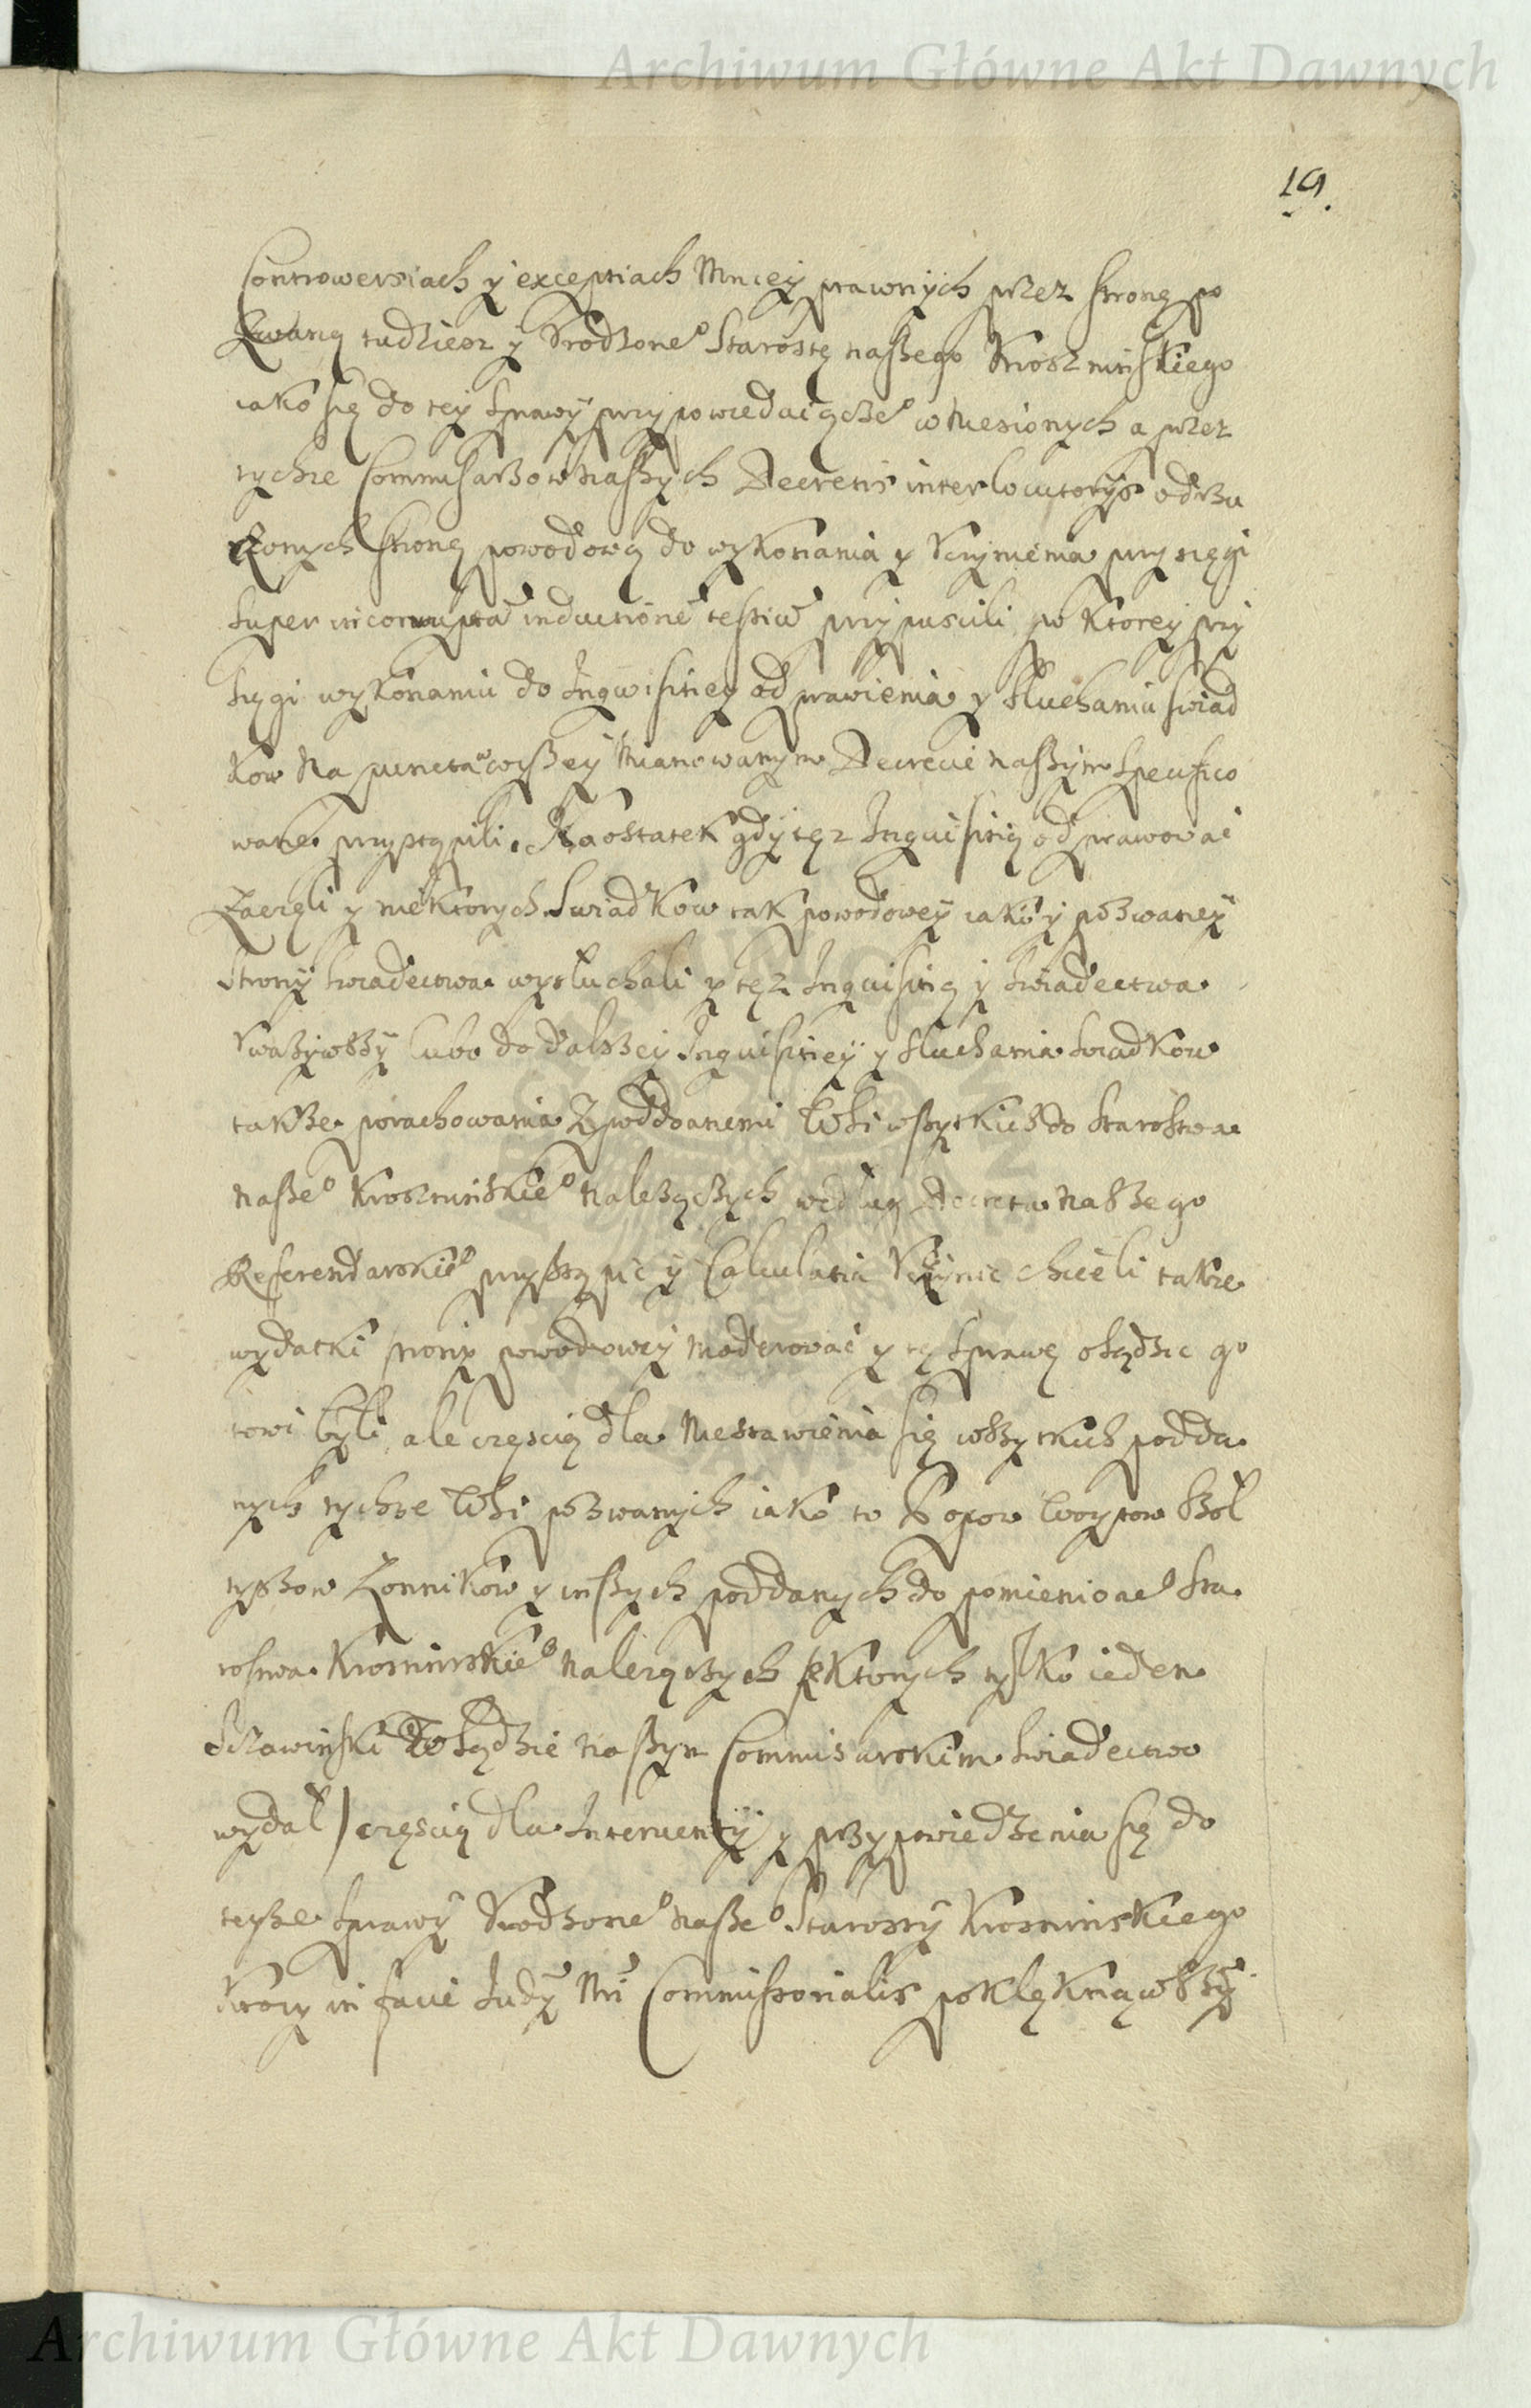 Archiwum Główne Akt Dawnych
19.
Controwersiach y exceptiach Mniey prawnych przez stronę po
zwaną tudziesz y Vrodzone° Starostę naszego Krosznińskiego
iako się do tey sprawy przypowiedaiącze° wniesionych a przez
tychże Commisarzow naszych Decretis interlocutorys odrzu
conych stronę powodową do wykonania y Vczynienia przysięgi
super incorrupta inductione testiu przypuscili po ktorey przy
sięgi wykonaniu do Inqwisitiey odprawienia y słuchaniu swiad
kow na puncta wyszey mianowanym Decrecie naszym specifico
wane przystąpili. Naostatek gdy tęz Inquisitią odprawować
zaczęli y niektorych swiadkow tak powodowey iako y pozwaney
strony swiadectwa wysłuchali y tęz Inquisitią y swiadectwa
Vwazywszy lubo do dalszey Inquisitiey y słuchania swiadkow
takze porachowania z poddanemi Wsi wszytkich do starostwa
nasze° Krosznińskie° nalezączych według Decretu naszego
Referendarskie° przystąpić y Calculatią Vczynić chcieli takze
wydatki strony powodowey moderować y tę sprawę osądzic go
towi byli ale częscią dla niestawienia się wszytkich podda
nych tychze Wsi pozwanych iako to Popow Woytow Szoł
tyszow Łonnikow y inszych poddanych do pomienione° sta
rostwa Krosninskie° nalezączych z ktorych tylko ieden
Sczawiński w sądzie naszym Commisarskim swiadectwo
wydał) częscią dla Interuentÿ y przypowiedzenia się do
teyze sprawy Vrodzone° nasze° Starosty Krosninskiego
ktory in facie Judÿ Nri Commissorialis poklęknąwszy
Archiwum Główne Akt Dawnych